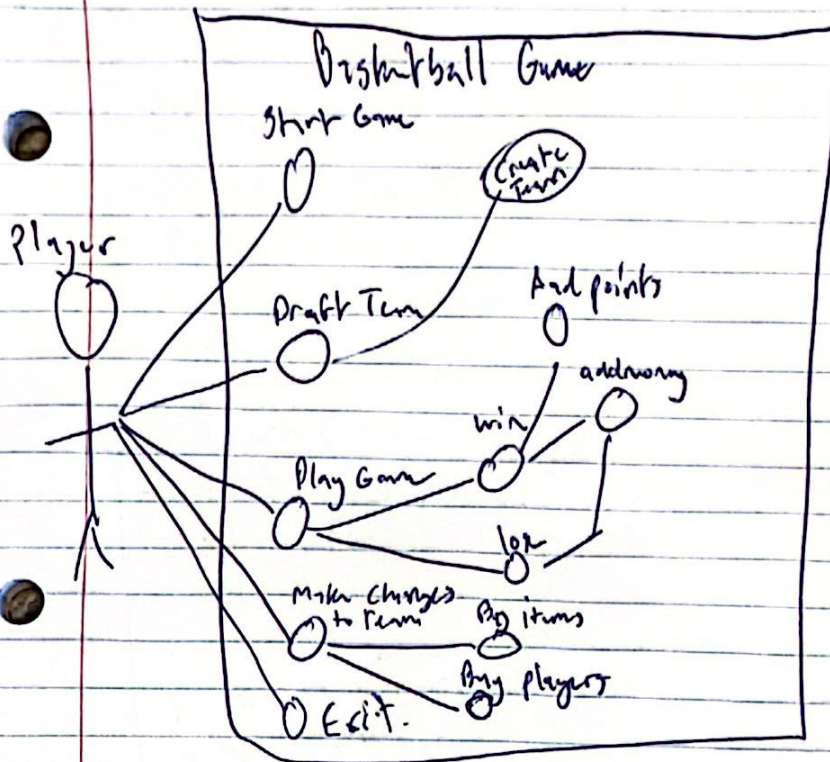 Basketball Game
Start Game
Create
Team
Player
Add points
Draft Team
add money
win
Play Game
lose
Make Changes
to Team
Buy items
Buy players
Exit.